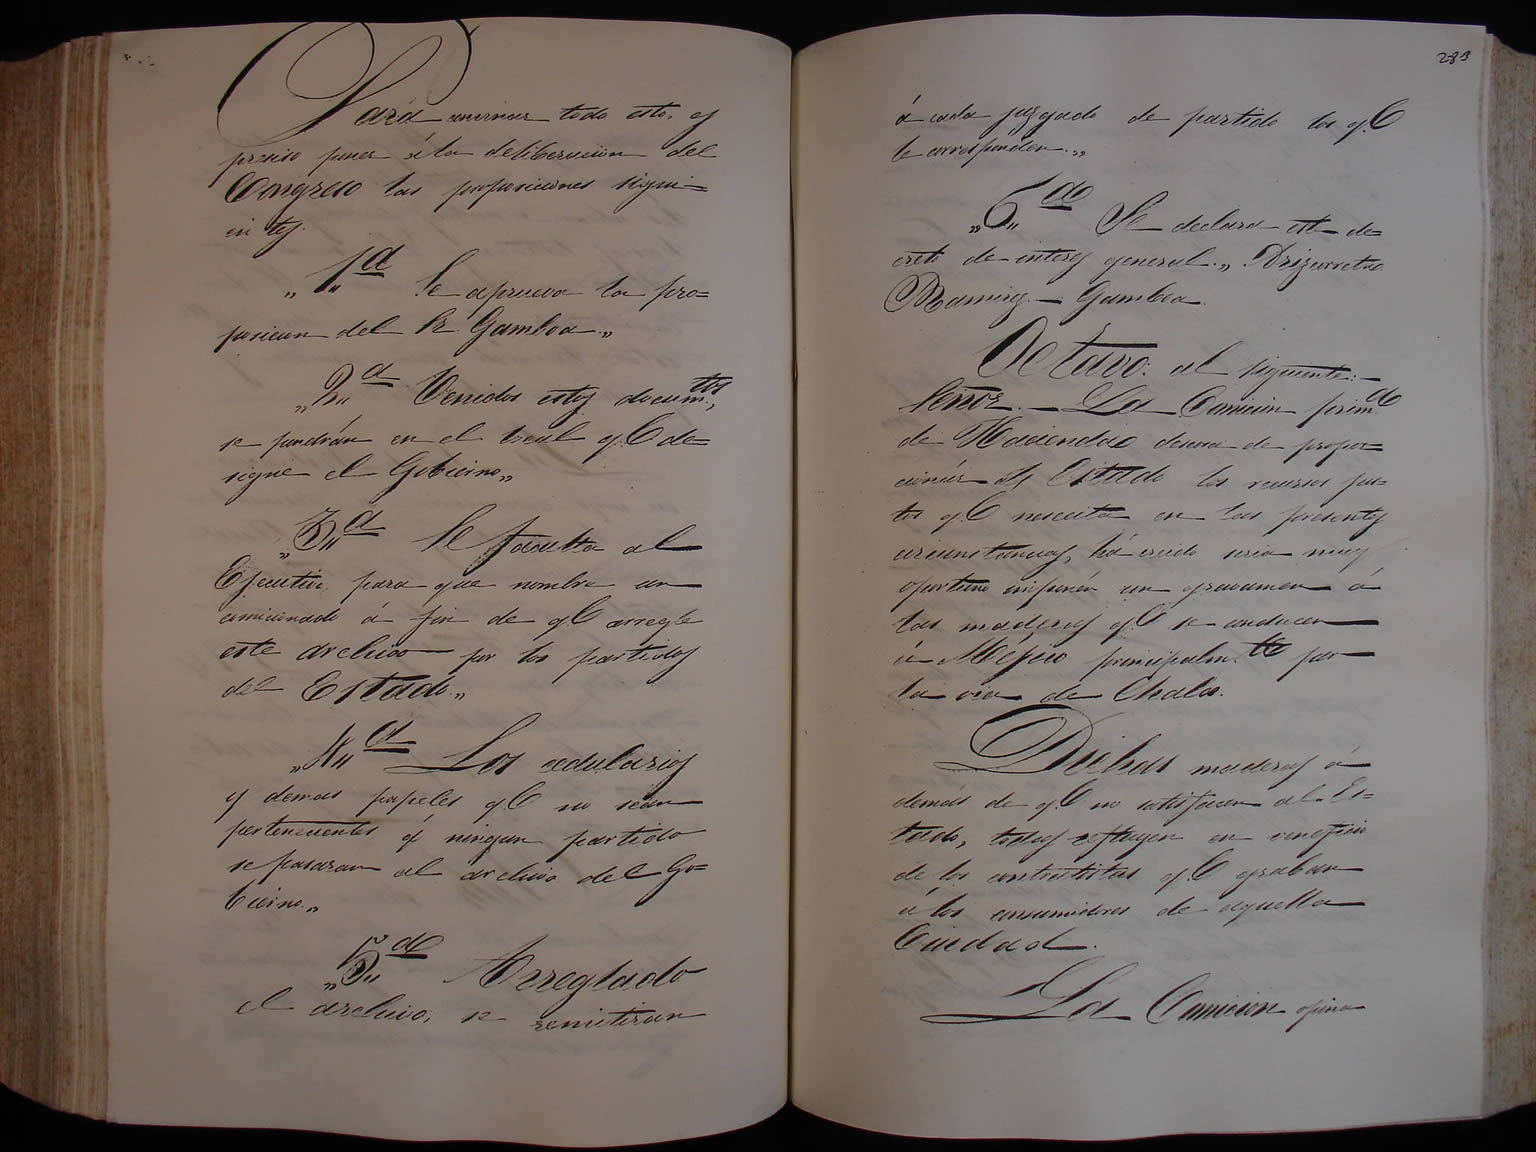 Para anernar todo esto, es
preciso poner á la deliberacion del
Congreso las proposiciones sigui=
entes.
„1„ª Se aprueva la pro=
posicion del Sr. Gamboa„
„2„ª Venidos estos documtos,
se pondrán en el local q.e de=
signe el Gobierno„
„3„ª Se faculta al
Ejecutivo para que nombre un
comicionado á fin de q.e arregle
este archivo por los partidos
del Estado„
„4„ª Los cedularios
y demas papeles q.e no sean
pertenecientes á ningun partido
se pasaran al archivo del Go=
bierno„
„5„da Arreglado
el archivo, se remitiran
283
á cada juzgado de partido los q.e
le corresponden„
„6„da Se declara este de=
creto de interes general„ Arizcorreta
Ramirez.—Gamboa.
Octavo: al siguiente:—
Señor.—La Comicion prim.da
de Hacienda deseosa de propor=
cionár al Estado los recursos jus=
tos q.e nesecita en las presentes
circunstancias, há creido seria muy
oportuno imponér un gravamen á
las maderas q.e se conducen
á Méjico principalm.te por
la via de Chalco.
Dichas maderas á
demás de q.e no satisfacen al Es=
tado, todas refluyen en veneficio
de los contratistas q.e graban
á los consumidores de aquella
Ciudad.
La Comicion opina